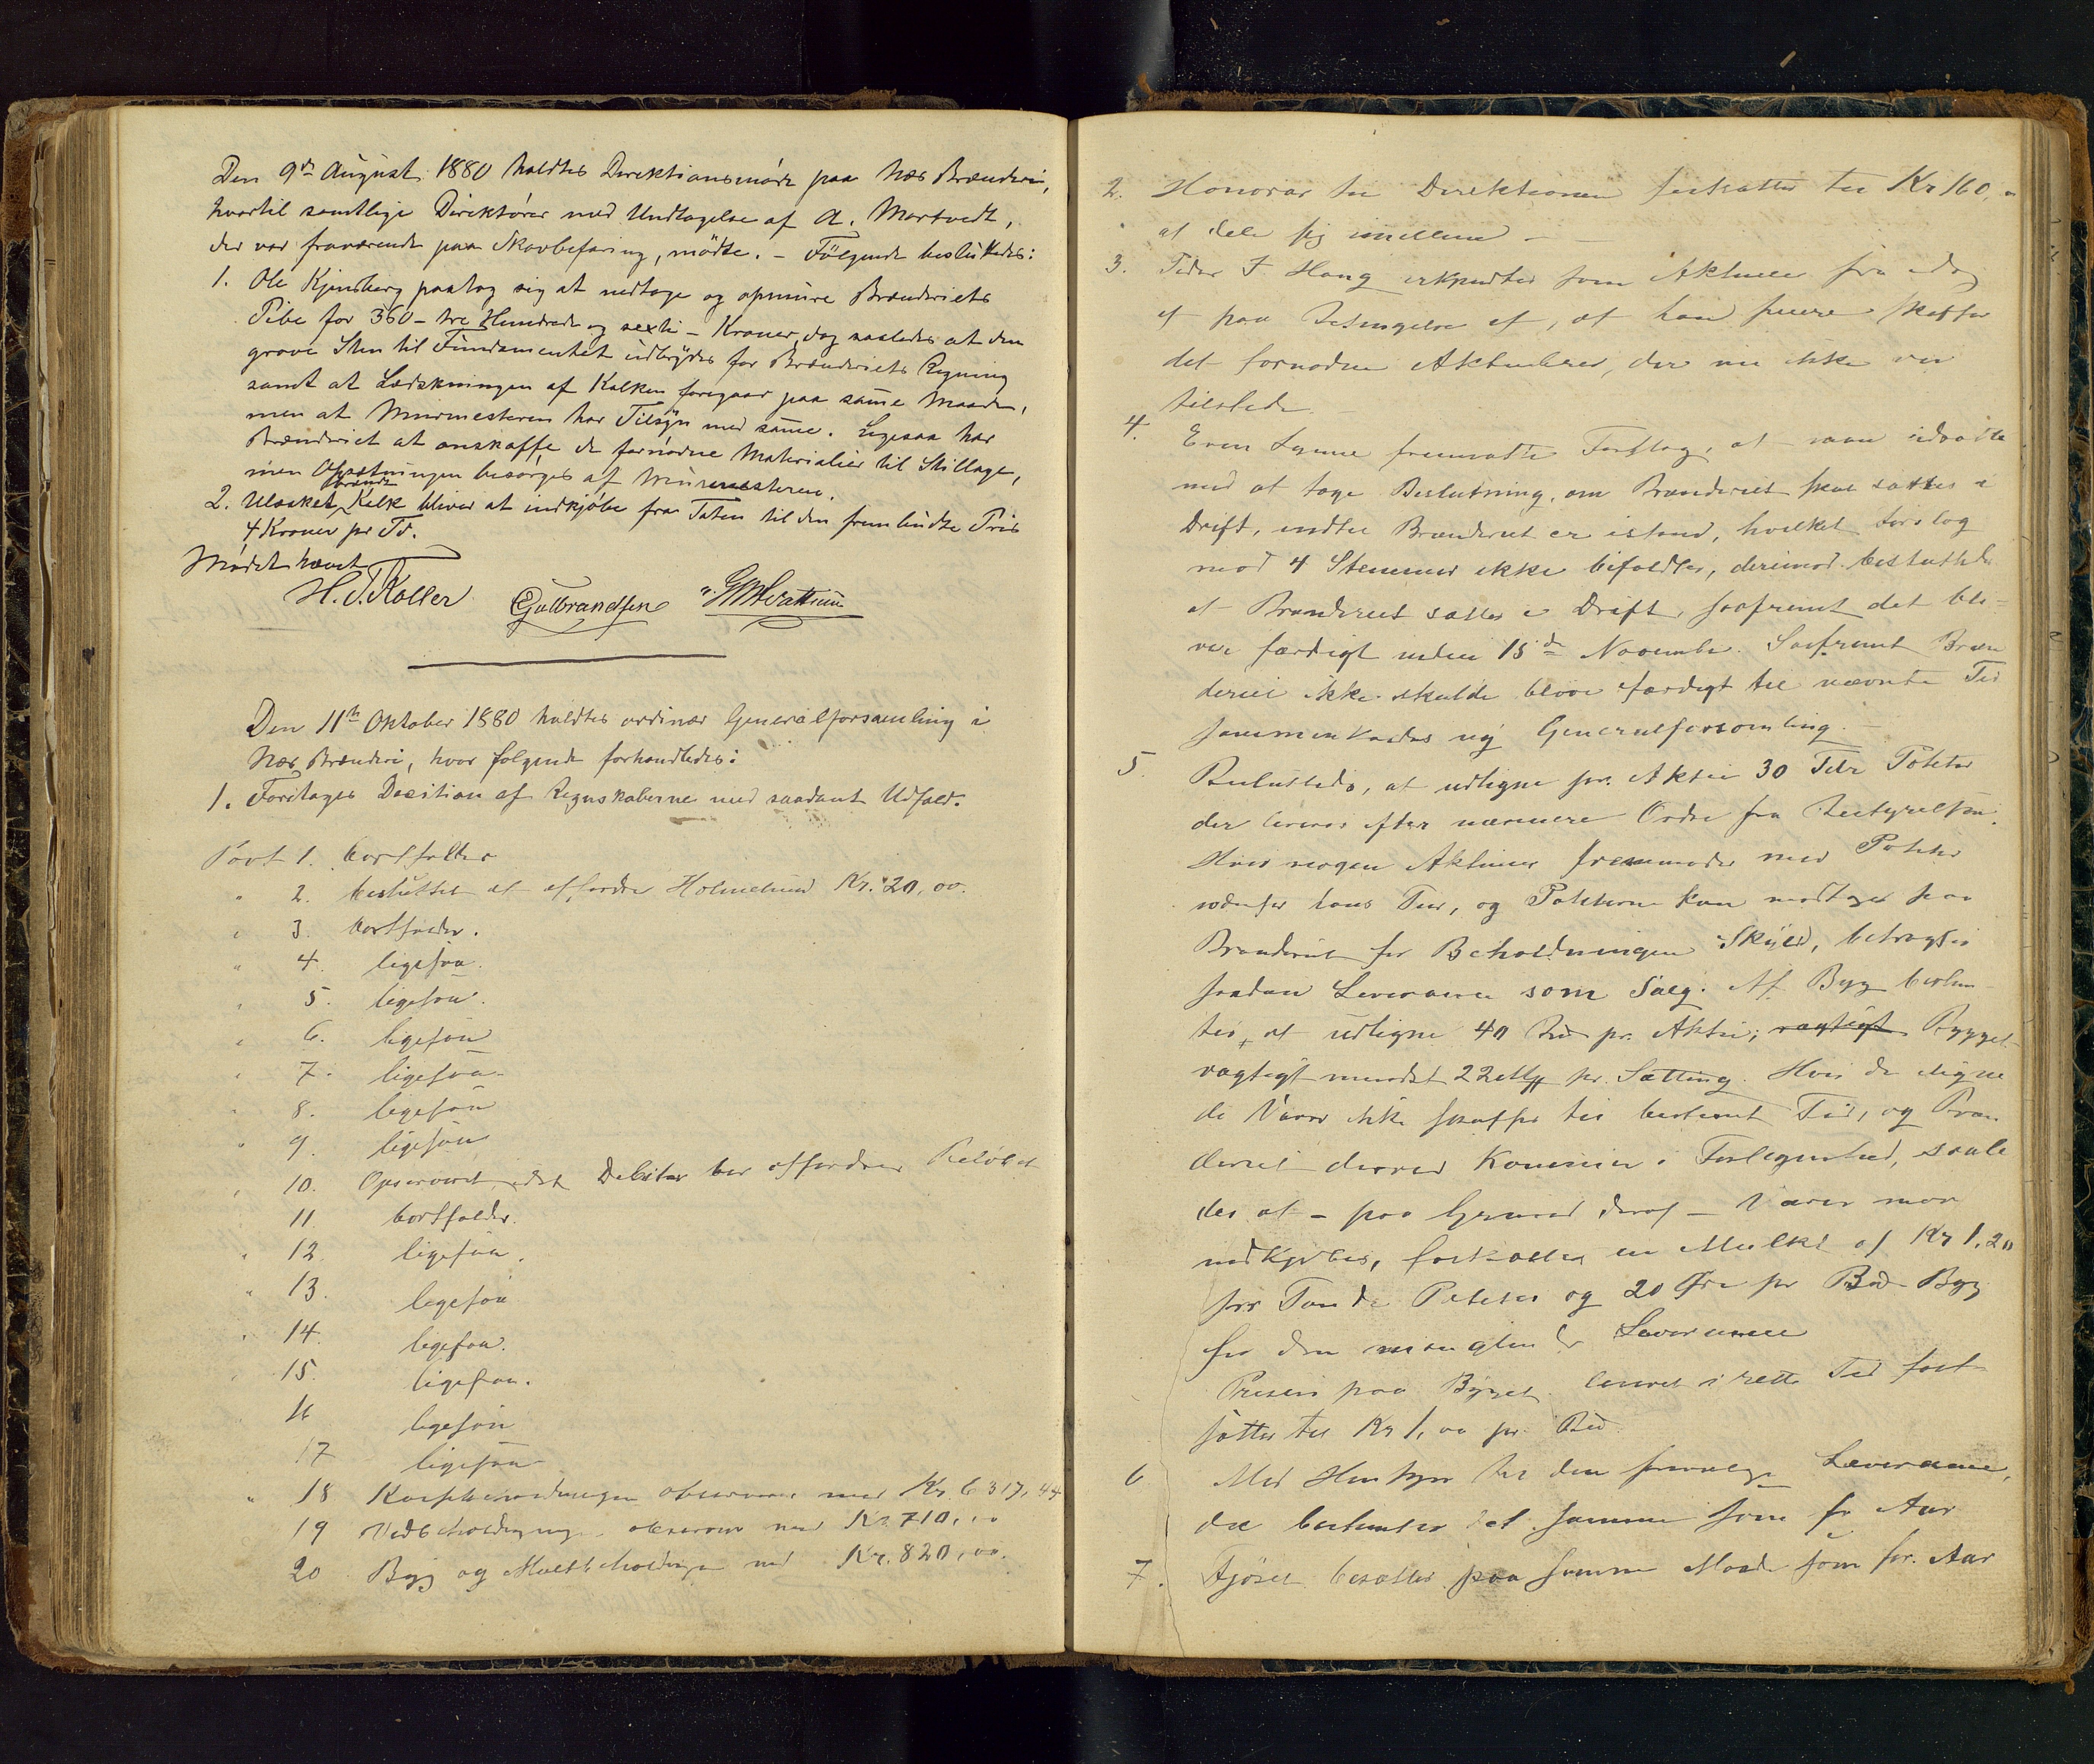 Den 9de August 1880 holdtes Direktionsmöde paa Næs Brænderi,
hvortil samtlige Direktörer med Undtagelse af A. Mortvedt,
der var fraværende paa Skovbefaring, mödte. – Fölgende besluttedes:
1. Ole Kjensberg paatog sig at nedtage og opmure Brænderiets
Pibe for 360 – tre Hundrede og sexti – Kroner, dog saaledes at den
grove Sten til Fundamentet udbrydes for Brænderiets Regning
samt at Lædskningen af Kalken foregaar paa samme Maade,
men at Murmesteren har Tilsyn med samme. Ligesaa har
Brænderiet at anskaffe de fornödne Materialier til Stillage,
men Opsætningen besörges af Murmesteren.
2. Ulæsket brændt Kalk bliver at indkjöbe fra Toten til den frembudte Pris
4 Kroner pr Td.
Mödet hævet
H. J. Koller Gulbrandsen
Den 11te Oktober 1880 holdtes ordinær Generalforsamling i
Næs Brænderi, hvor fölgende forhandledes:
1. Foretages Decition af Regnskaberne med saadant Udfald.
Post 1. bortfalder
" 2. besluttet at affordre Holmelund Kr. 20,00.
" 3. bortfalder.
" 4. ligesaa.
" 5. ligesaa.
" 6. ligesaa
" 7. ligesaa
" 8. ligesaa
" 9. ligesaa
" 10. Debitor bør affordres Belöbet
11. bortfalder.
" 12. ligesaa.
" 13. ligesaa
" 14. ligesaa.
" 15. ligesaa.
16 ligesaa
17 ligesaa
" 18 observeres med Kr. 6317,44
19 Vedbeholdningen observeres med Kr. 710,00
20 Byg og Maltbeholdningen med Kr. 820,00.
2. Honorar til Direktionen fastsattes til Kr 160,
at dele sig imellem –
3. Peder J Haug som Aktieeier fra idag
af paa Betingelse af, at han senere skaffer
det fornødne Aktiebrev, der nu ikke var
tilstede.
4. Even Lynne fremsatte Forslag, at man
med at tage Beslutning, om Brænderiet skal sættes i
Drift, indtil Brænderiet er istand, hvilket Forslag
mod 4 Stemmer ikke bifaldtes, derimod besluttedes
at Brænderiet sættes i Drift, saafremt det bli-
ver færdigt inden 15de November. Saafremt Bræn
deriet ikke skulde blive færdigt til nævnte Tid
sammenkaldes ny Generalforsamling. –
5. Besluttedes, at udligne pr. Aktie 30 Tdr Poteter
der leveres efter nærmere Ordre fra Bestyrelsen.
Hvis nogen Aktieeier fremmøder med Poteter
udenfor hans Tur, og Poteterne kan modtages paa
Brænderiet for Beholdningen Skyld, betragtes
saadan Leverance som Salg. Af Byg beslut
tes, at udligne 40 Bd pr. Aktie; vægtigt Bygget
vægtigt mindst 22 pr. Sætting. Hvis de udligne
de Varer ikke skaffes til bestemt Tid, og Bræn
deriet derved kommer i Forlegenhed, saale
des at – paa Grund deraf – Varer maa
indkjöbes, fastsættes en Mulkt af Kr 1,20
for Tønde Poteter og 20 Øre pr Bd Byg
for den manglende Leverance
Prisen paa Bygget leveret i rette Tid fast
sættes til Kr 1,00 pr. Bd
6 Med Hensyn til Leverance,
da bestemtes det samme som fr Aar
7. Fjöset besættes paa samme Maade som for. Aar